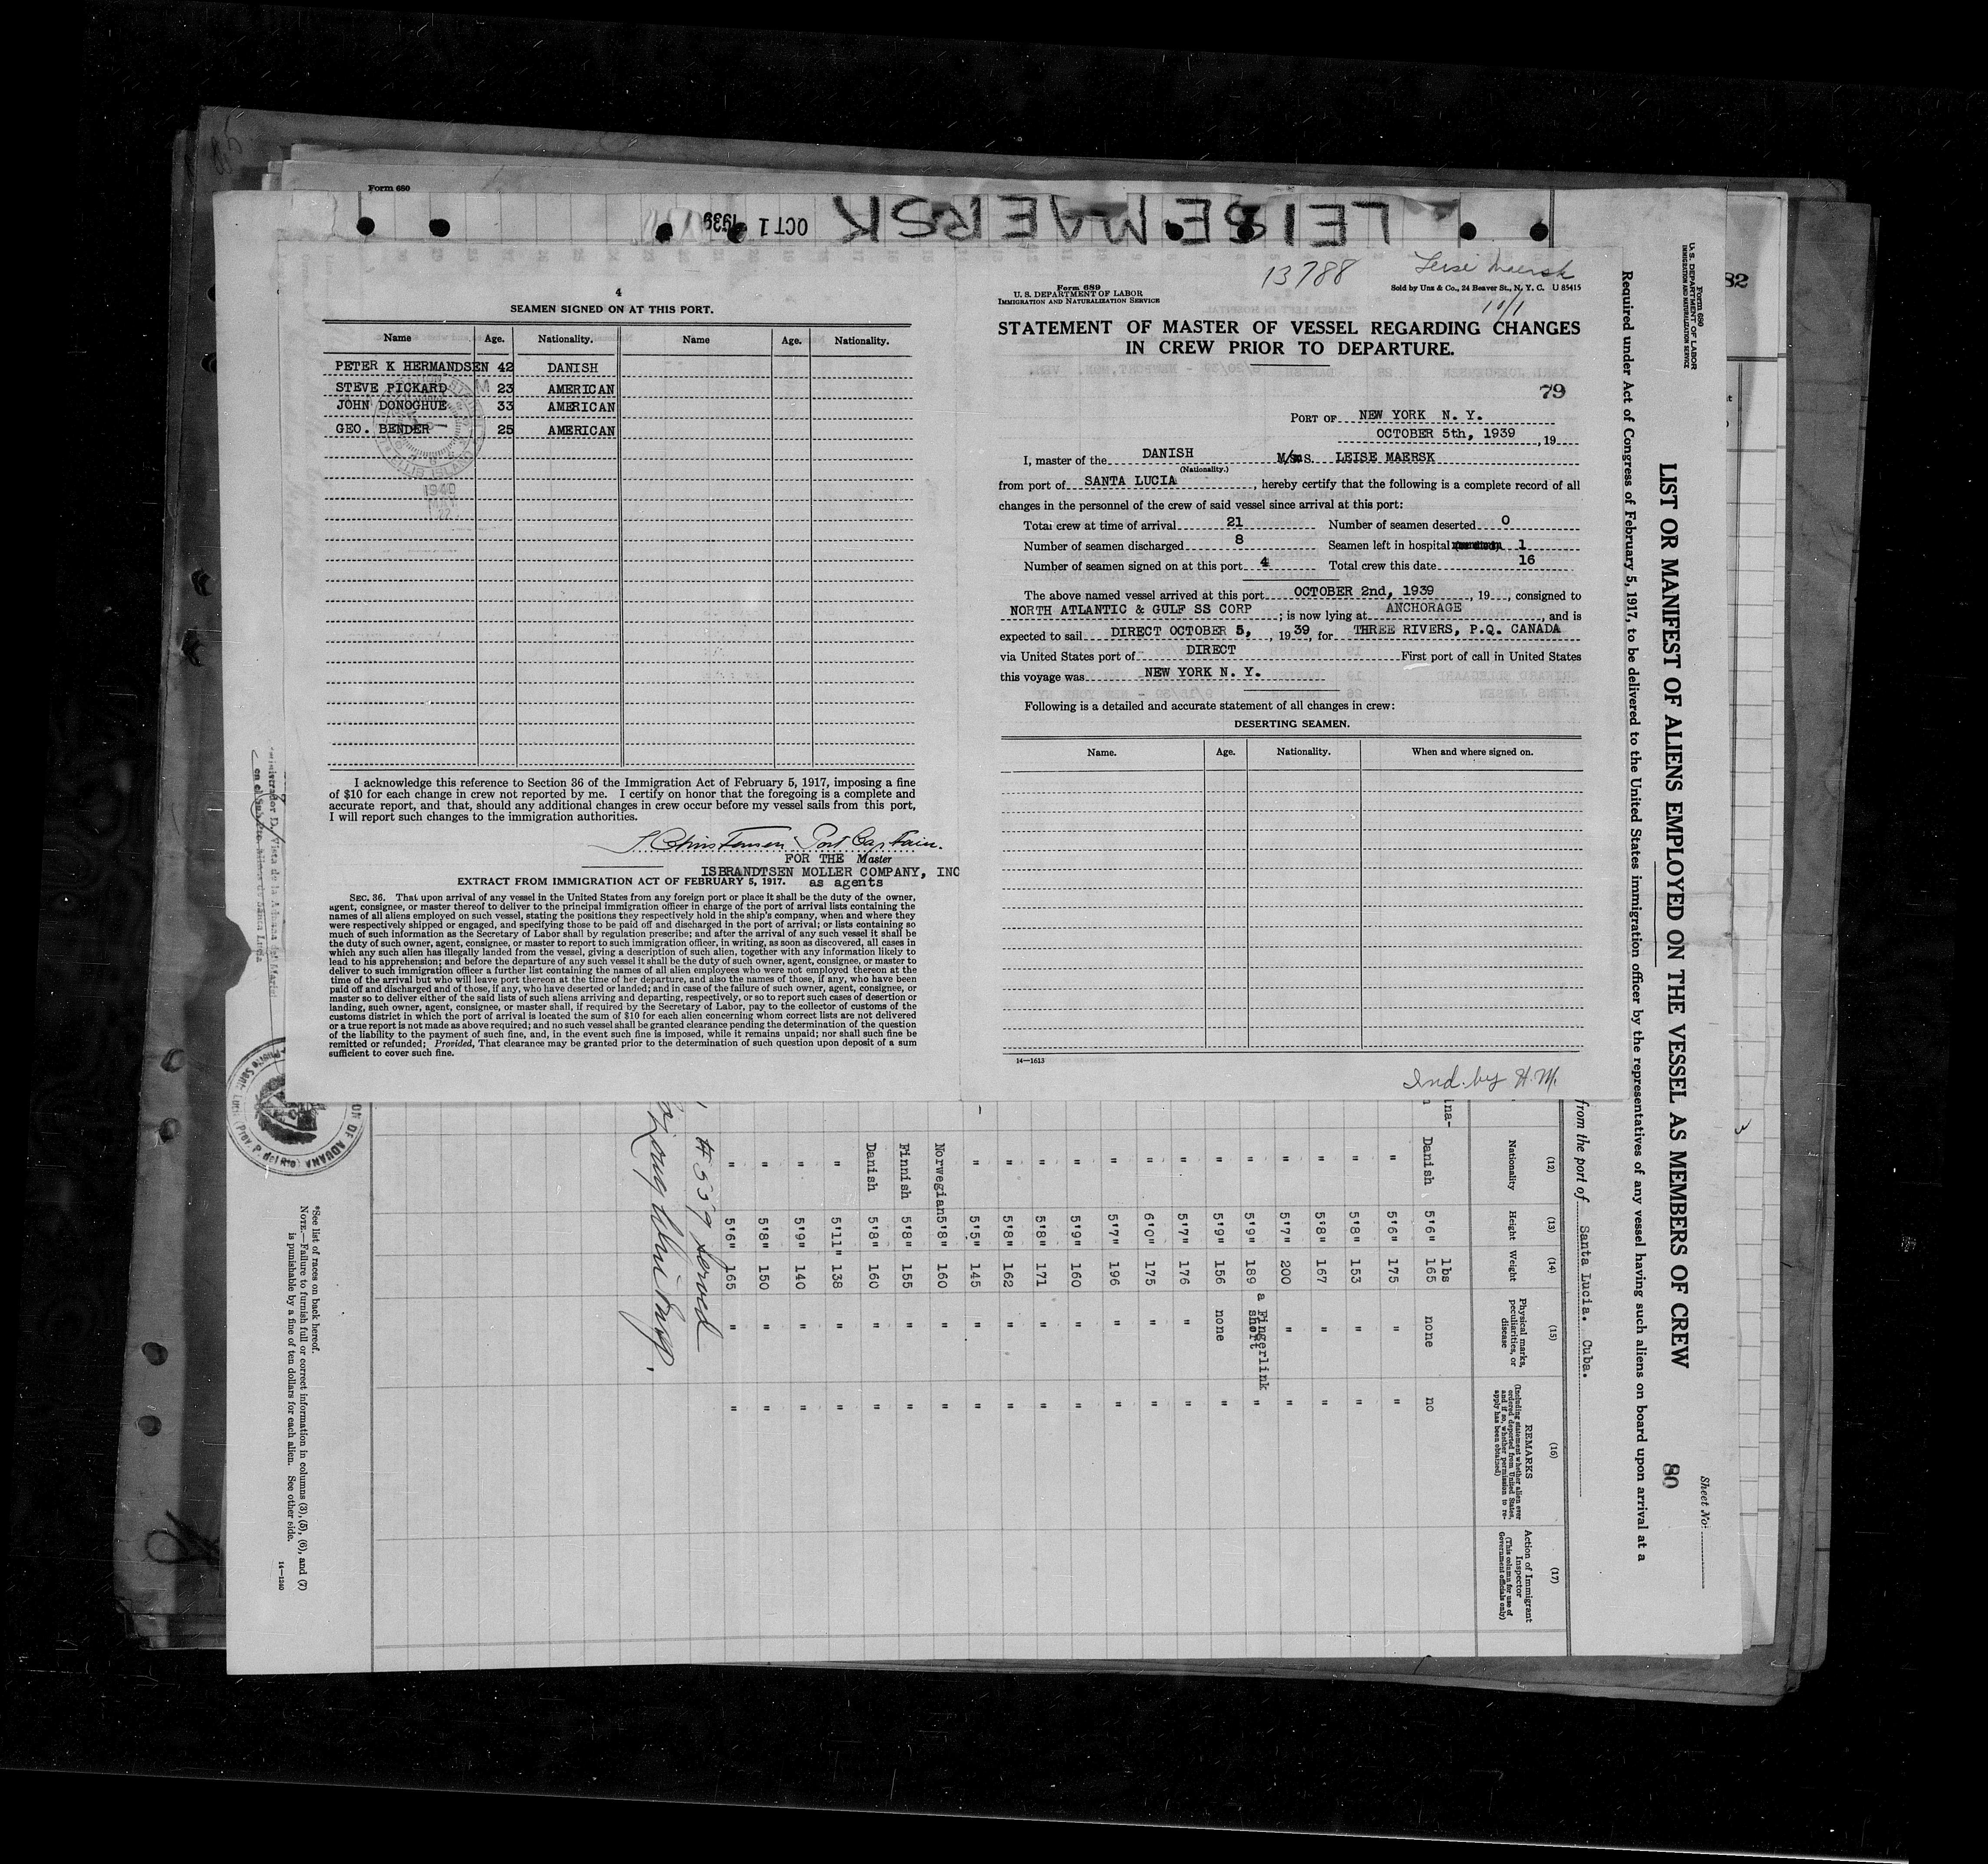 Form 680
OCT 1 1939
LEISE MAERSK
4
SEAMEN SIGNED ON AT THIS PORT.
Name Age. Nationality. Name Age. Nationality.
PETER K HERMANDSEN 42 DANISH
STEVE PICKARD 23 AMERICAN
JOHN DONOGHUE 33 AMERICAN
GEO. BENDER 25 AMERICAN
ELLIS ISLAND
1940
MAY
I acknowledge this reference to Section 36 of the Immigration Act of February 5, 1917, imposing a fine
of $10 for each change in crew not reported by me. I certify on honor that the foregoing is a complete and
accurate report, and that, should any additional changes in crew occur before my vessel sails from this port,
I will report such changes to the immigration authorities.
Christensen Port Captain.
FOR THE Master
ISBRANDTSEN MOLLER COMPANY, INC
EXTRACT FROM IMMIGRATION ACT OF FEBRUARY 5, 1917. as agents
SEC. 36. That upon arrival of any vessel in the United States from any foreign port or place it shall be the duty of the owner,
agent, consignee, or master thereof to deliver to the principal immigration officer in charge of the port of arrival lists containing the
names of all aliens employed on such vessel, stating the positions they respectively hold in the ship's company, when and where they
were respectively shipped or engaged, and specifying those to be paid off and discharged in the port of arrival; or lists containing so
much of such information as the Secretary of Labor shall by regulation prescribe; and after the arrival of any such vessel it shall be
the duty of such owner, agent, consignee, or master to report to such immigration officer, in writing, as soon as discovered, all cases in
which any such alien has illegally landed from the vessel, giving a description of such alien, together with any information likely to
lead to his apprehension; and before the departure of any such vessel it shall be the duty of such owner, agent, consignee, or master to
deliver to such immigration officer a further list containing the names of all alien employees who were not employed thereon at the
time of the arrival but who will leave port thereon at the time of her departure, and also the names of those, if any, who have been
paid off and discharged and of those, if any, who have deserted or landed; and in case of the failure of such owner, agent, consignee, or
master so to deliver either of the said lists of such aliens arriving and departing, respectively, or so to report such cases of desertion or
landing, such owner, agent, consignee, or master shall, if required by the Secretary of Labor, pay to the collector of customs of the
customs district in which the port of arrival is located the sum of $10 for each alien concerning whom correct lists are not delivered
or a true report is not made as above required; and no such vessel shall be granted clearance pending the determination of the question
of the liability to the payment of such fine, and, in the event such fine is imposed, while it remains unpaid; nor shall such fine be
remitted or refunded; Provided, That clearance may be granted prior to the determination of such question upon deposit of a sum
sufficient to cover such fine.
13788
Leise Maersk
10/1
Form 689
U. S. DEPARTMENT OF LABOR
IMMIGRATION AND NATURALIZATION SERVICE
Sold by Unz & Co., 24 Beaver St., N. Y. C. U 85415
STATEMENT OF MASTER OF VESSEL REGARDING CHANGES
IN CREW PRIOR TO DEPARTURE.
79
PORT OF NEW YORK N. Y.
OCTOBER 5th, 1939, 19
I, master of the DANISH M/S LEISE MAERSK
(Nationality.)
from port of SANTA LUCIA, hereby certify that the following is a complete record of all
changes in the personnel of the crew of said vessel since arrival at this port:
Total crew at time of arrival 21 Number of seamen deserted 0
Number of seamen discharged 8 Seamen left in hospital 1
Number of seamen signed on at this port 4 Total crew this date 16
The above named vessel arrived at this port OCTOBER 2nd, 1939, 19, consigned to
NORTH ATLANTIC & GULF SS CORP; is now lying at ANCHORAGE, and is
expected to sail DIRECT OCTOBER 5,, 1939, for THREE RIVERS, P.Q. CANADA
via United States port of DIRECT First port of call in United States
this voyage was NEW YORK N. Y.
Following is a detailed and accurate statement of all changes in crew:
DESERTING SEAMEN.
Name. Age. Nationality. When and where signed on.
14—1613
Ind. by H.M.
82
Form 680
U.S. DEPARTMENT OF LABOR
IMMIGRATION AND NATURALIZATION SERVICE
Sheet No.
LIST OR MANIFEST OF ALIENS EMPLOYED ON THE VESSEL AS MEMBERS OF CREW 80
Required under Act of Congress of February 5, 1917, to be delivered to the United States immigration officer by the representatives of any vessel having such aliens on board upon arrival at a
from the port of Santa Lucia. Cuba.
(12) (13) (14) (15) (16) (17)
Nationality Height Weight Physical marks, peculiarities, or disease REMARKS (Including statement whether alien ever ordered deported from United States, and if so, whether permission to reapply has been obtained) Action of Immigrant Inspector (This column for use of Government officials only)
lbs
Danish 5'6" 165 none no
" 5'6" 175 " "
" 5'8" 153 " "
" 5'8" 167 " "
" 5'7" 200 " "
" 5'9" 189 a Fingerlink short "
" 5'9" 156 none "
" 5'7" 176 " "
" 6'0" 175 " "
" 5'7" 196 " "
" 5'9" 160 " "
" 5'8" 171 " "
" 5'8" 162 " "
" 5'5" 145 " "
Norwegian 5'8" 160 " "
Finnish 5'8" 155 " "
Danish 5'8" 160 " "
" 5'11" 138 " "
" 5'9" 140 " "
" 5'8" 150 " "
" 5'6" 165 " "
# 539 served
*See list of races on back hereof.
NOTE.—Failure to furnish full or correct information in columns (3), (5), (6), and (7)
is punishable by a fine of ten dollars for each alien. See other side.
14—1240